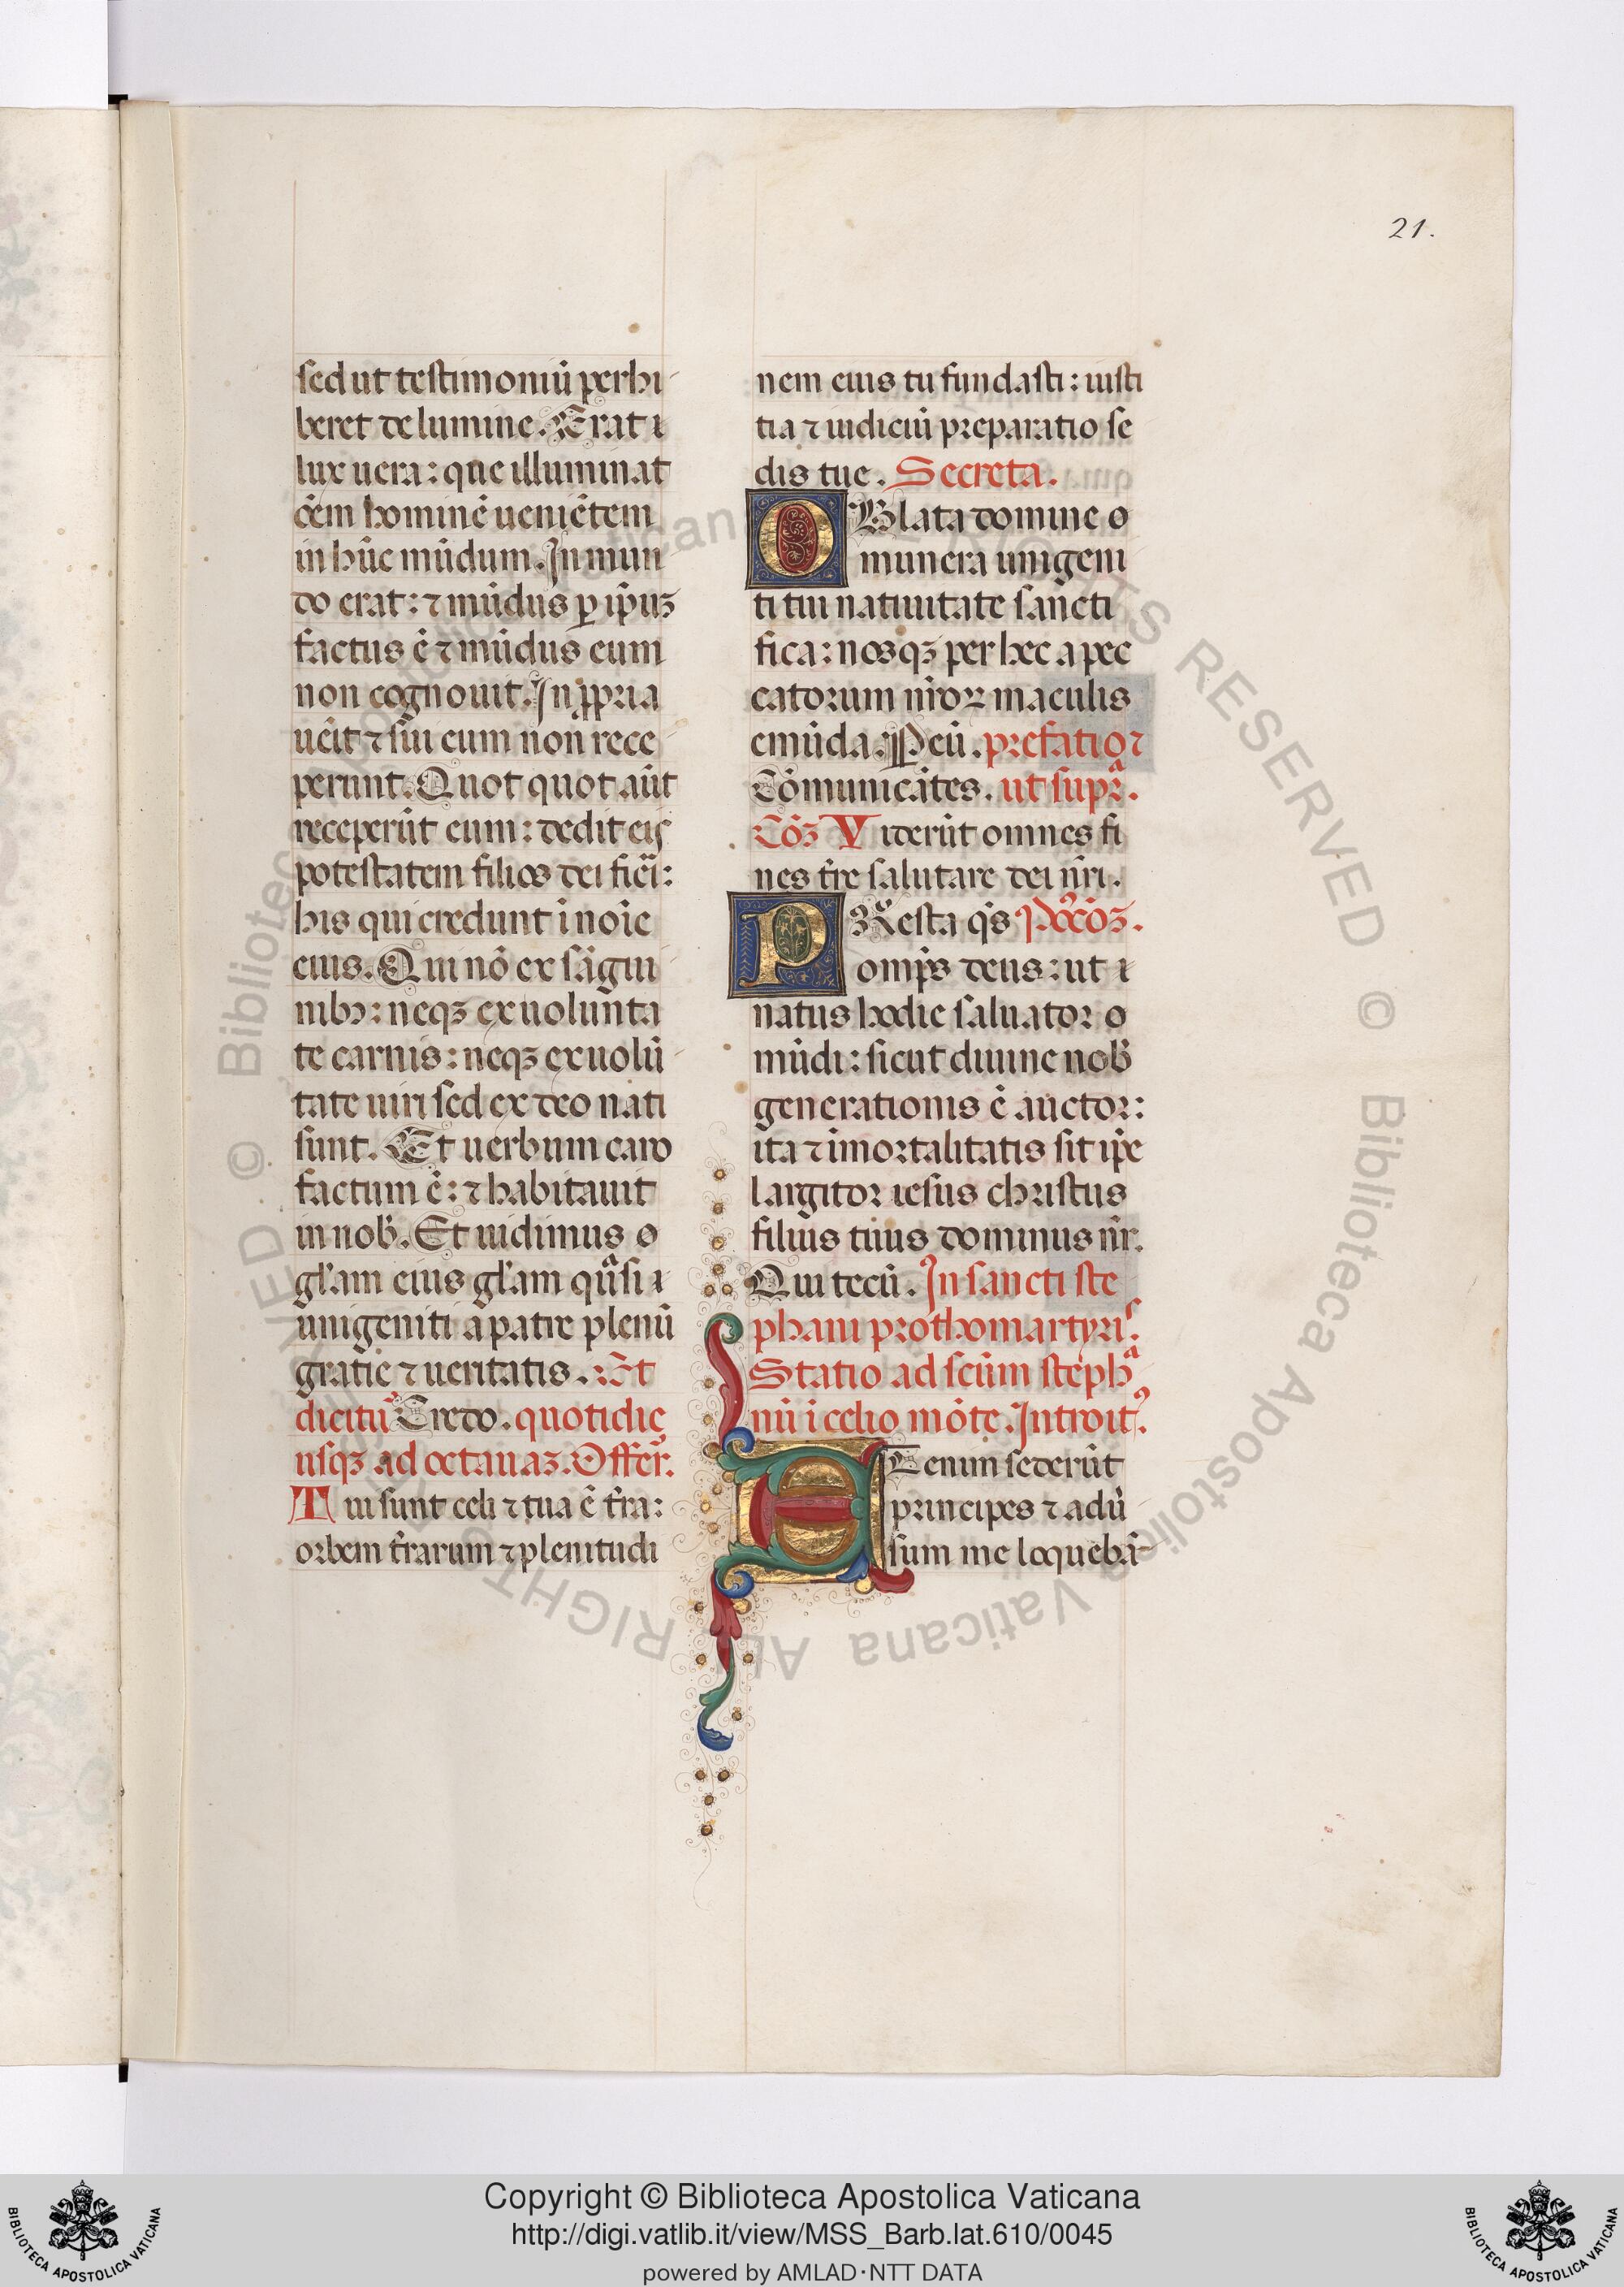 21.
sed ut testimoniū perhi
beret de lumine. Erat i
lux uera: que illuminat
oēm hominē ueniētem
in hūc mūdum. In mun
do erat: ⁊ mūdus ꝑ ip̄uꝫ
factus ē ⁊ mūdus eum
non cognouit. In ꝓpria
uēit ⁊ sui eum non rece
perunt. Quot quot aūt
receperūt eum: dedit eis
potestatem filios dei fieri:
his qui credunt ī noīe
eius. Qui nō ex sāgui
nibꝫ: neqꝫ ex uolunta
te carnis: neqꝫ ex uolū
tate uiri sed ex deo nati
sunt. Et uerbum caro
factum ē: ⁊ habitauit
in nob̄. Et uidimus o
gl̄am eius gl̄am quasi i
unigeniti a patre plenū
gratie ⁊ ueritatis. Et
dicitur Credo. quotidie
usqꝫ ad octauaꝫ. Offer̄.
Tui sunt celi ⁊ tua ē t̄ra:
orbem t̄rarum ⁊ plenitudi
nem eius tu fundasti: iusti
tia ⁊ iudiciū preparatio se
dis tue. Secreta.
OBlata domine o
munera unigeni
ti tui natiuitate sancti
fica: nosqꝫ per hec a pec
catorum nr̄oꝝ maculis
emūda. Peū. prefatio ⁊
Cōmunicātes. ut supra.
Cōꝫ Viderūt omnes fi
nes t̄re salutare dei nr̄i.
PResta q̄s Postcōꝫ.
omp̄s deus: ut i
natus hodie saluator o
mūdi: sicut diuine nob̄
generationis ē auctor:
ita ⁊ imortalitatis sit ip̄e
largitor iesus christus
filius tuus dominus nr̄.
Qui tecū. In sancti ste
phani prothomartyris.
Statio ad scūm stepha
nū ī celio mōte. Introit⁹.
ETenim sederūt
principes ⁊ aduersus
sum me loquebā
Copyright © Biblioteca Apostolica Vaticana
http://digi.vatlib.it/view/MSS_Barb.lat.610/0045
powered by AMLAD·NTT DATA
BIBLIOTECA APOSTOLICA VATICANA
BIBLIOTECA APOSTOLICA VATICANA